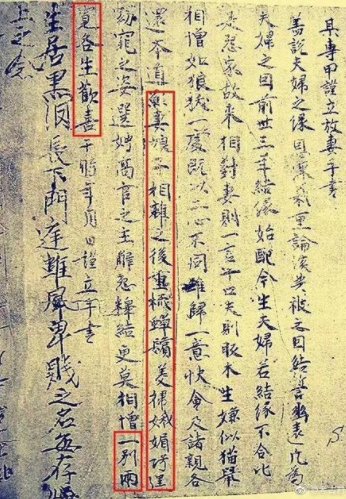 某專甲謹立放妻手書
蓋說夫婦之緣恩深義重論談共被之因結誓幽遠凡為
夫婦之因前世三年結緣始配今生夫婦若結緣不合比
是怨家故來相對妻則一言十口夫則反木生嫌似猫鼠
相憎如狼一處既以二心不同難歸一意快會及諸親各
還本道願妻娘子相離之後重梳蟬鬢美掃娥媚巧逞
窈窕之姿選娉高官之主解怨釋結更莫相憎一別兩
寬各生歡喜于時年月日謹立手書
生居黑長下門達離風卑賤之名無存
上之